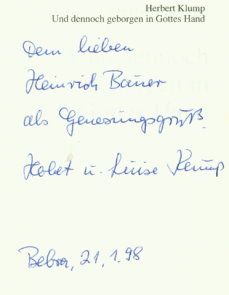 Herbert Klump
Und dennoch geborgen in Gottes Hand
Dem lieben
Heinrich Bauer
als Genesungsgruß.
u. Luise Klump
Bebra, 21.1.98